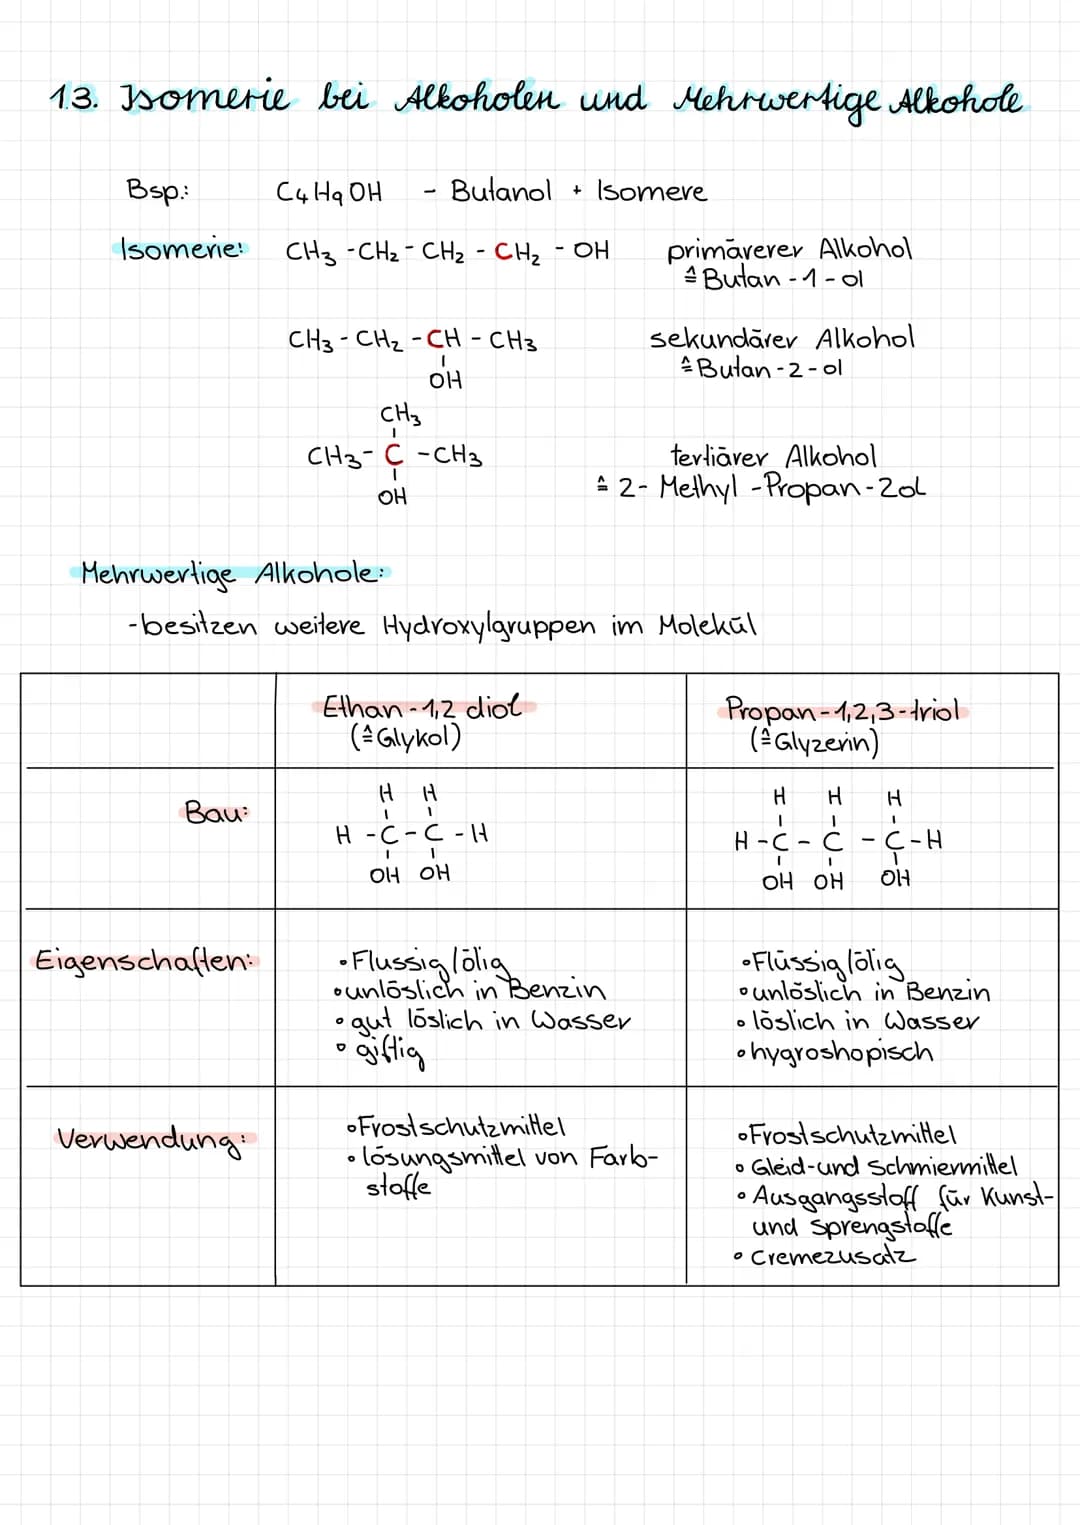 1.3. Isomerie bei Alkoholen und Mehrwertige Alkohole
Bsp.: C4H9OH - Butanol + Isomere
Isomerie: CH3 - CH2 - CH2 - CH2 - OH primärerer Alkohol
≙ Butan-1-ol
CH3 - CH2 - CH - CH3 sekundärer Alkohol
OH ≙ Butan-2-ol
CH3
CH3 - C - CH3 tertiärer Alkohol
OH ≙ 2-Methyl-Propan-2ol
Mehrwertige Alkohole:
- besitzen weitere Hydroxylgruppen im Molekül
Ethan-1,2 diol
(≙ Glykol)
Propan-1,2,3-triol
(≙ Glyzerin)
Bau:
H H
H - C - C - H
OH OH
H H H
H - C - C - C - H
OH OH OH
Eigenschaften:
• Flussig/ölig
• unlöslich in Benzin
• gut löslich in Wasser
• giftig
• Flüssig/ölig
• unlöslich in Benzin
• löslich in Wasser
• hygroshopisch
Verwendung:
• Frostschutzmittel
• lösungsmittel von Farb-
stoffe
• Frostschutzmittel
• Gleid- und Schmiermittel
• Ausgangsstoff für Kunst-
und sprengstoffe
• Cremezusatz